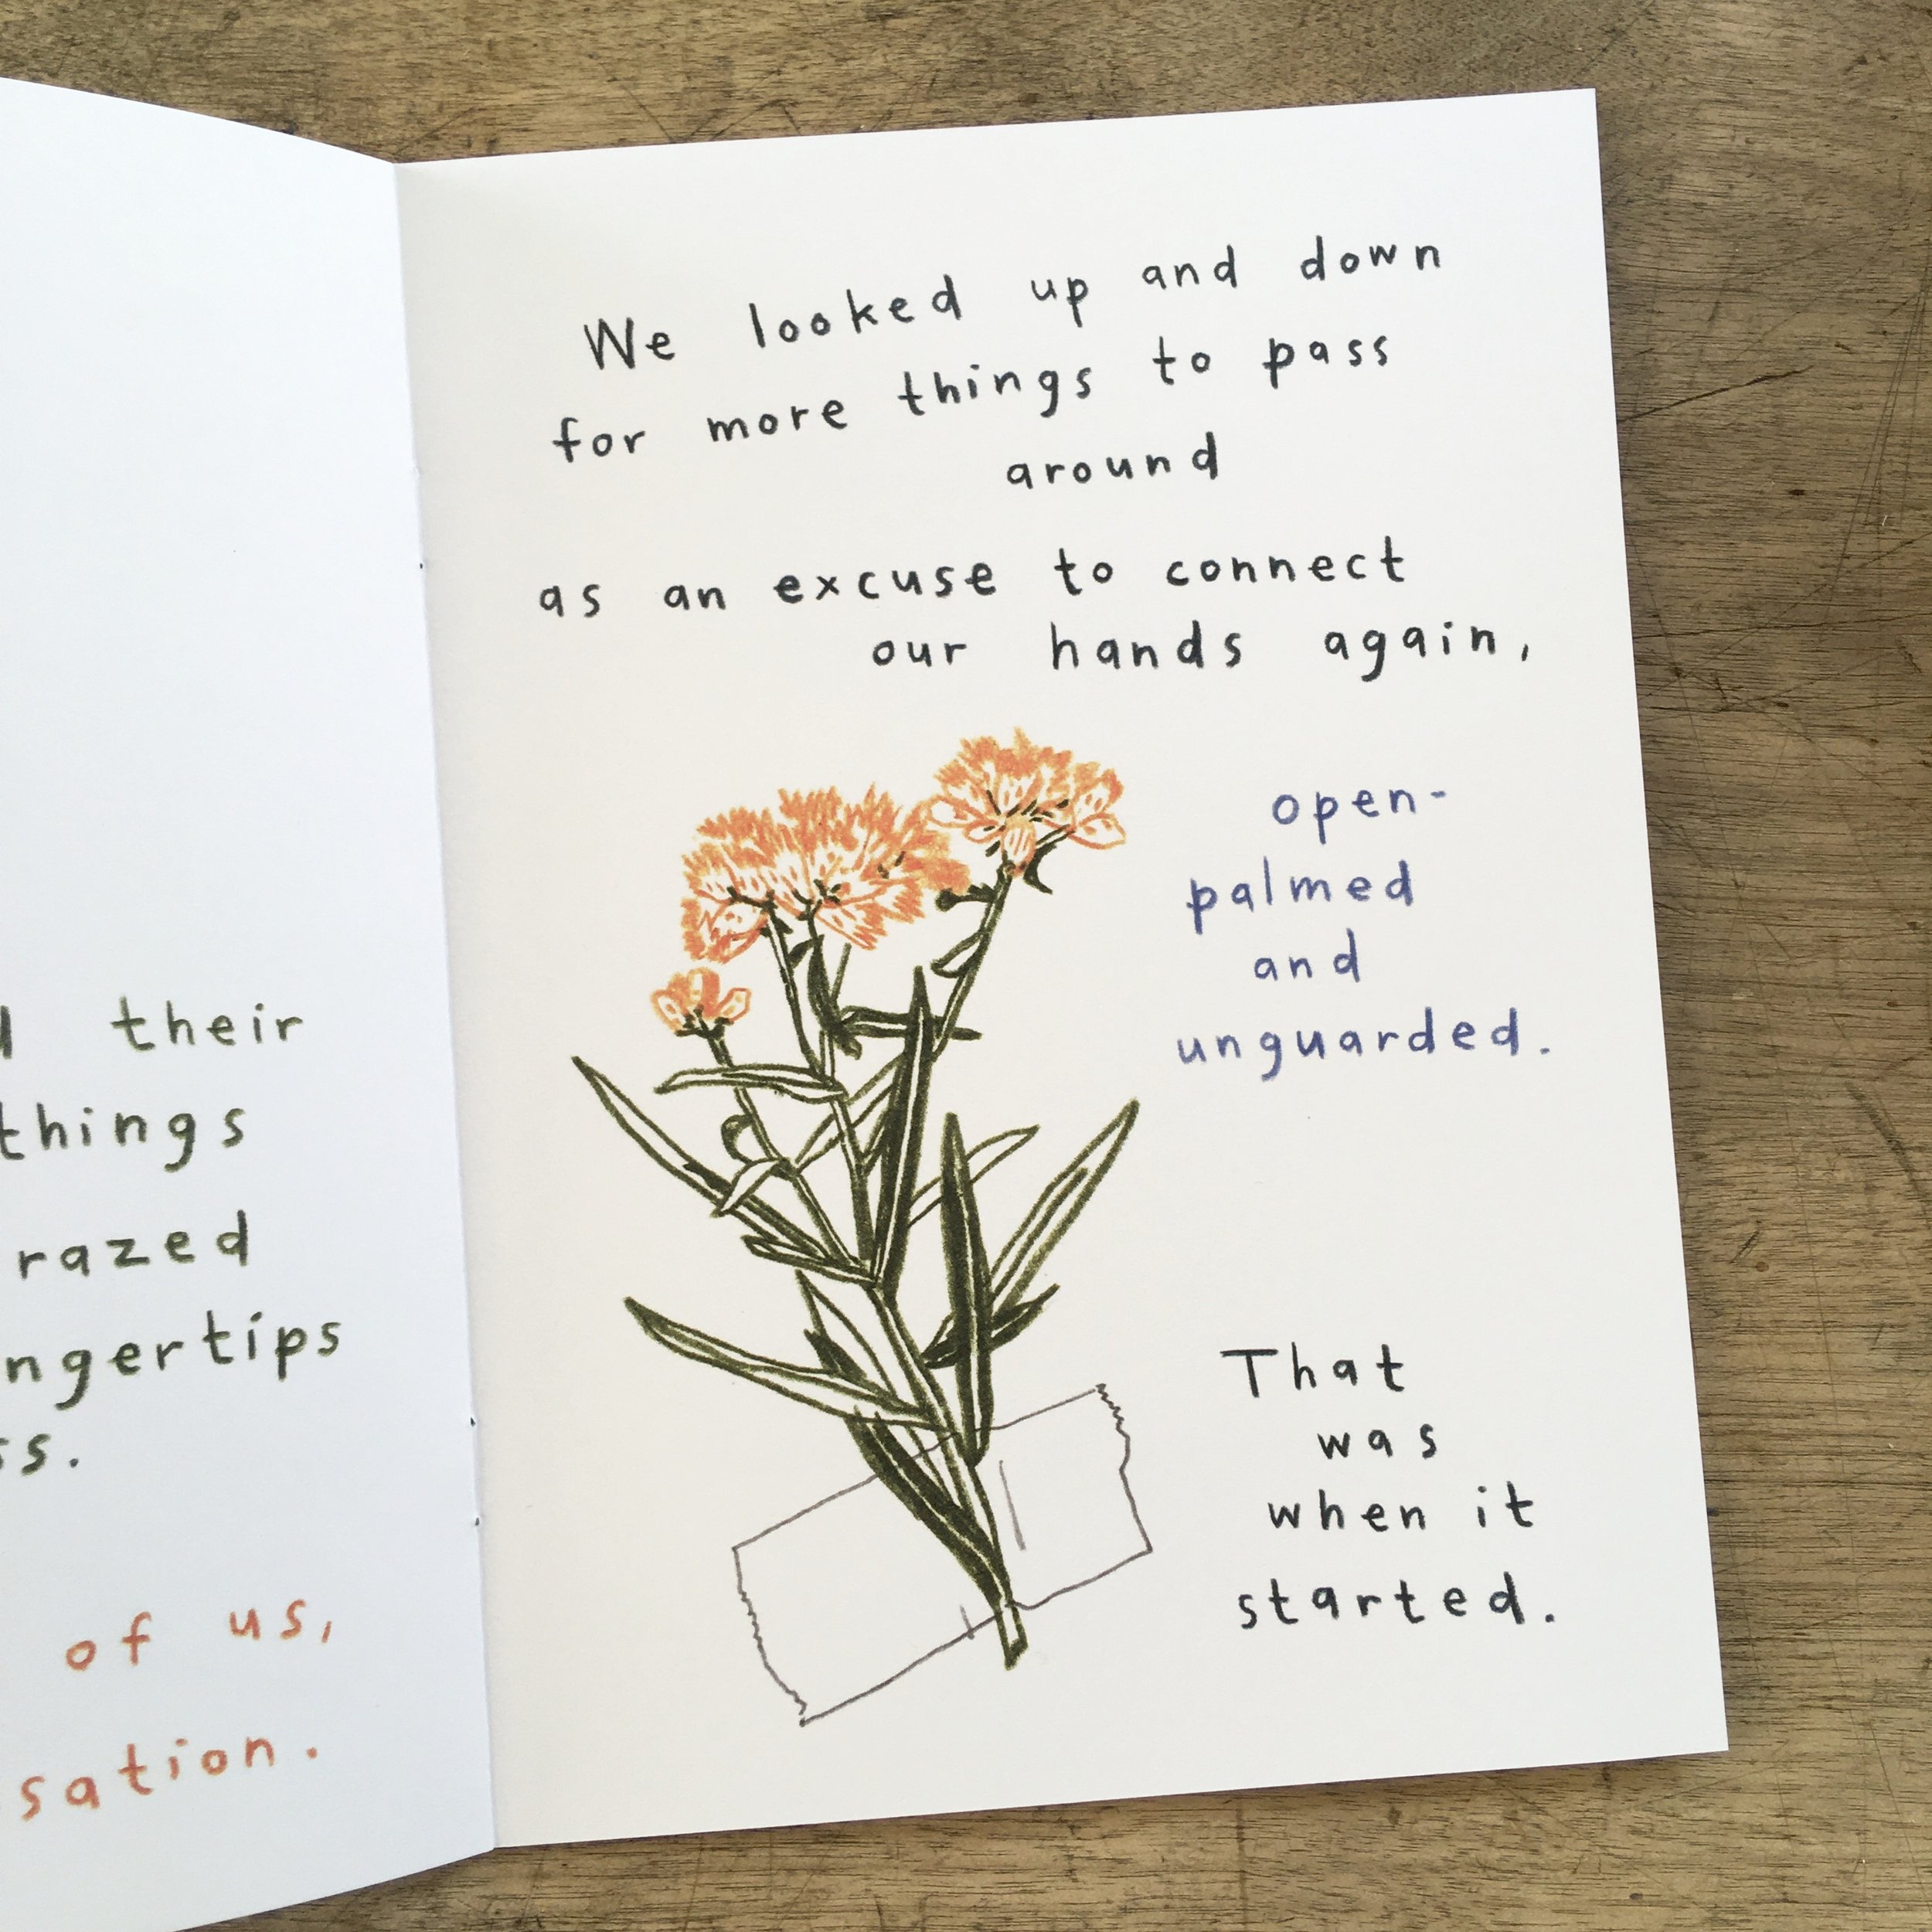 their
things
razed
ngertips
s.
of us,
sation.
We looked up and down
for more things to pass
around
as an excuse to connect
our hands again,
open-
palmed
and
unguarded.
That
was
when it
started.